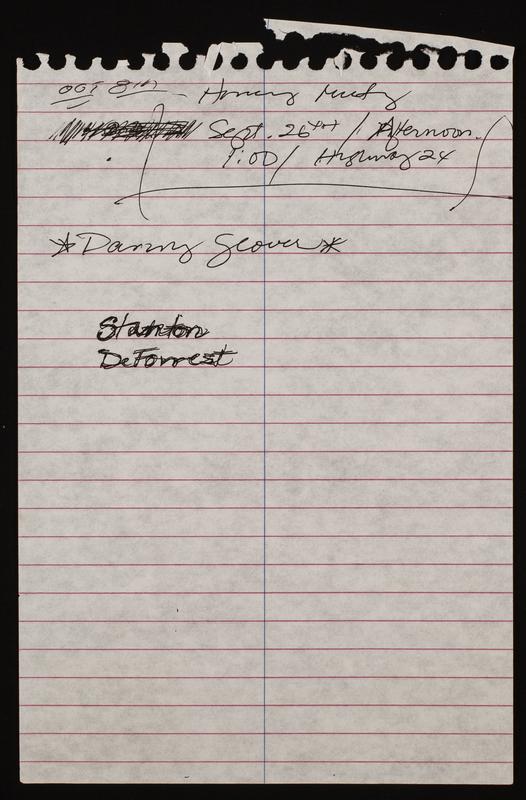 OCT 8th -
Sept. 26th / Afternoon.
1:00 / Highway 24
*Danny Glover*
Stanton
DeForrest